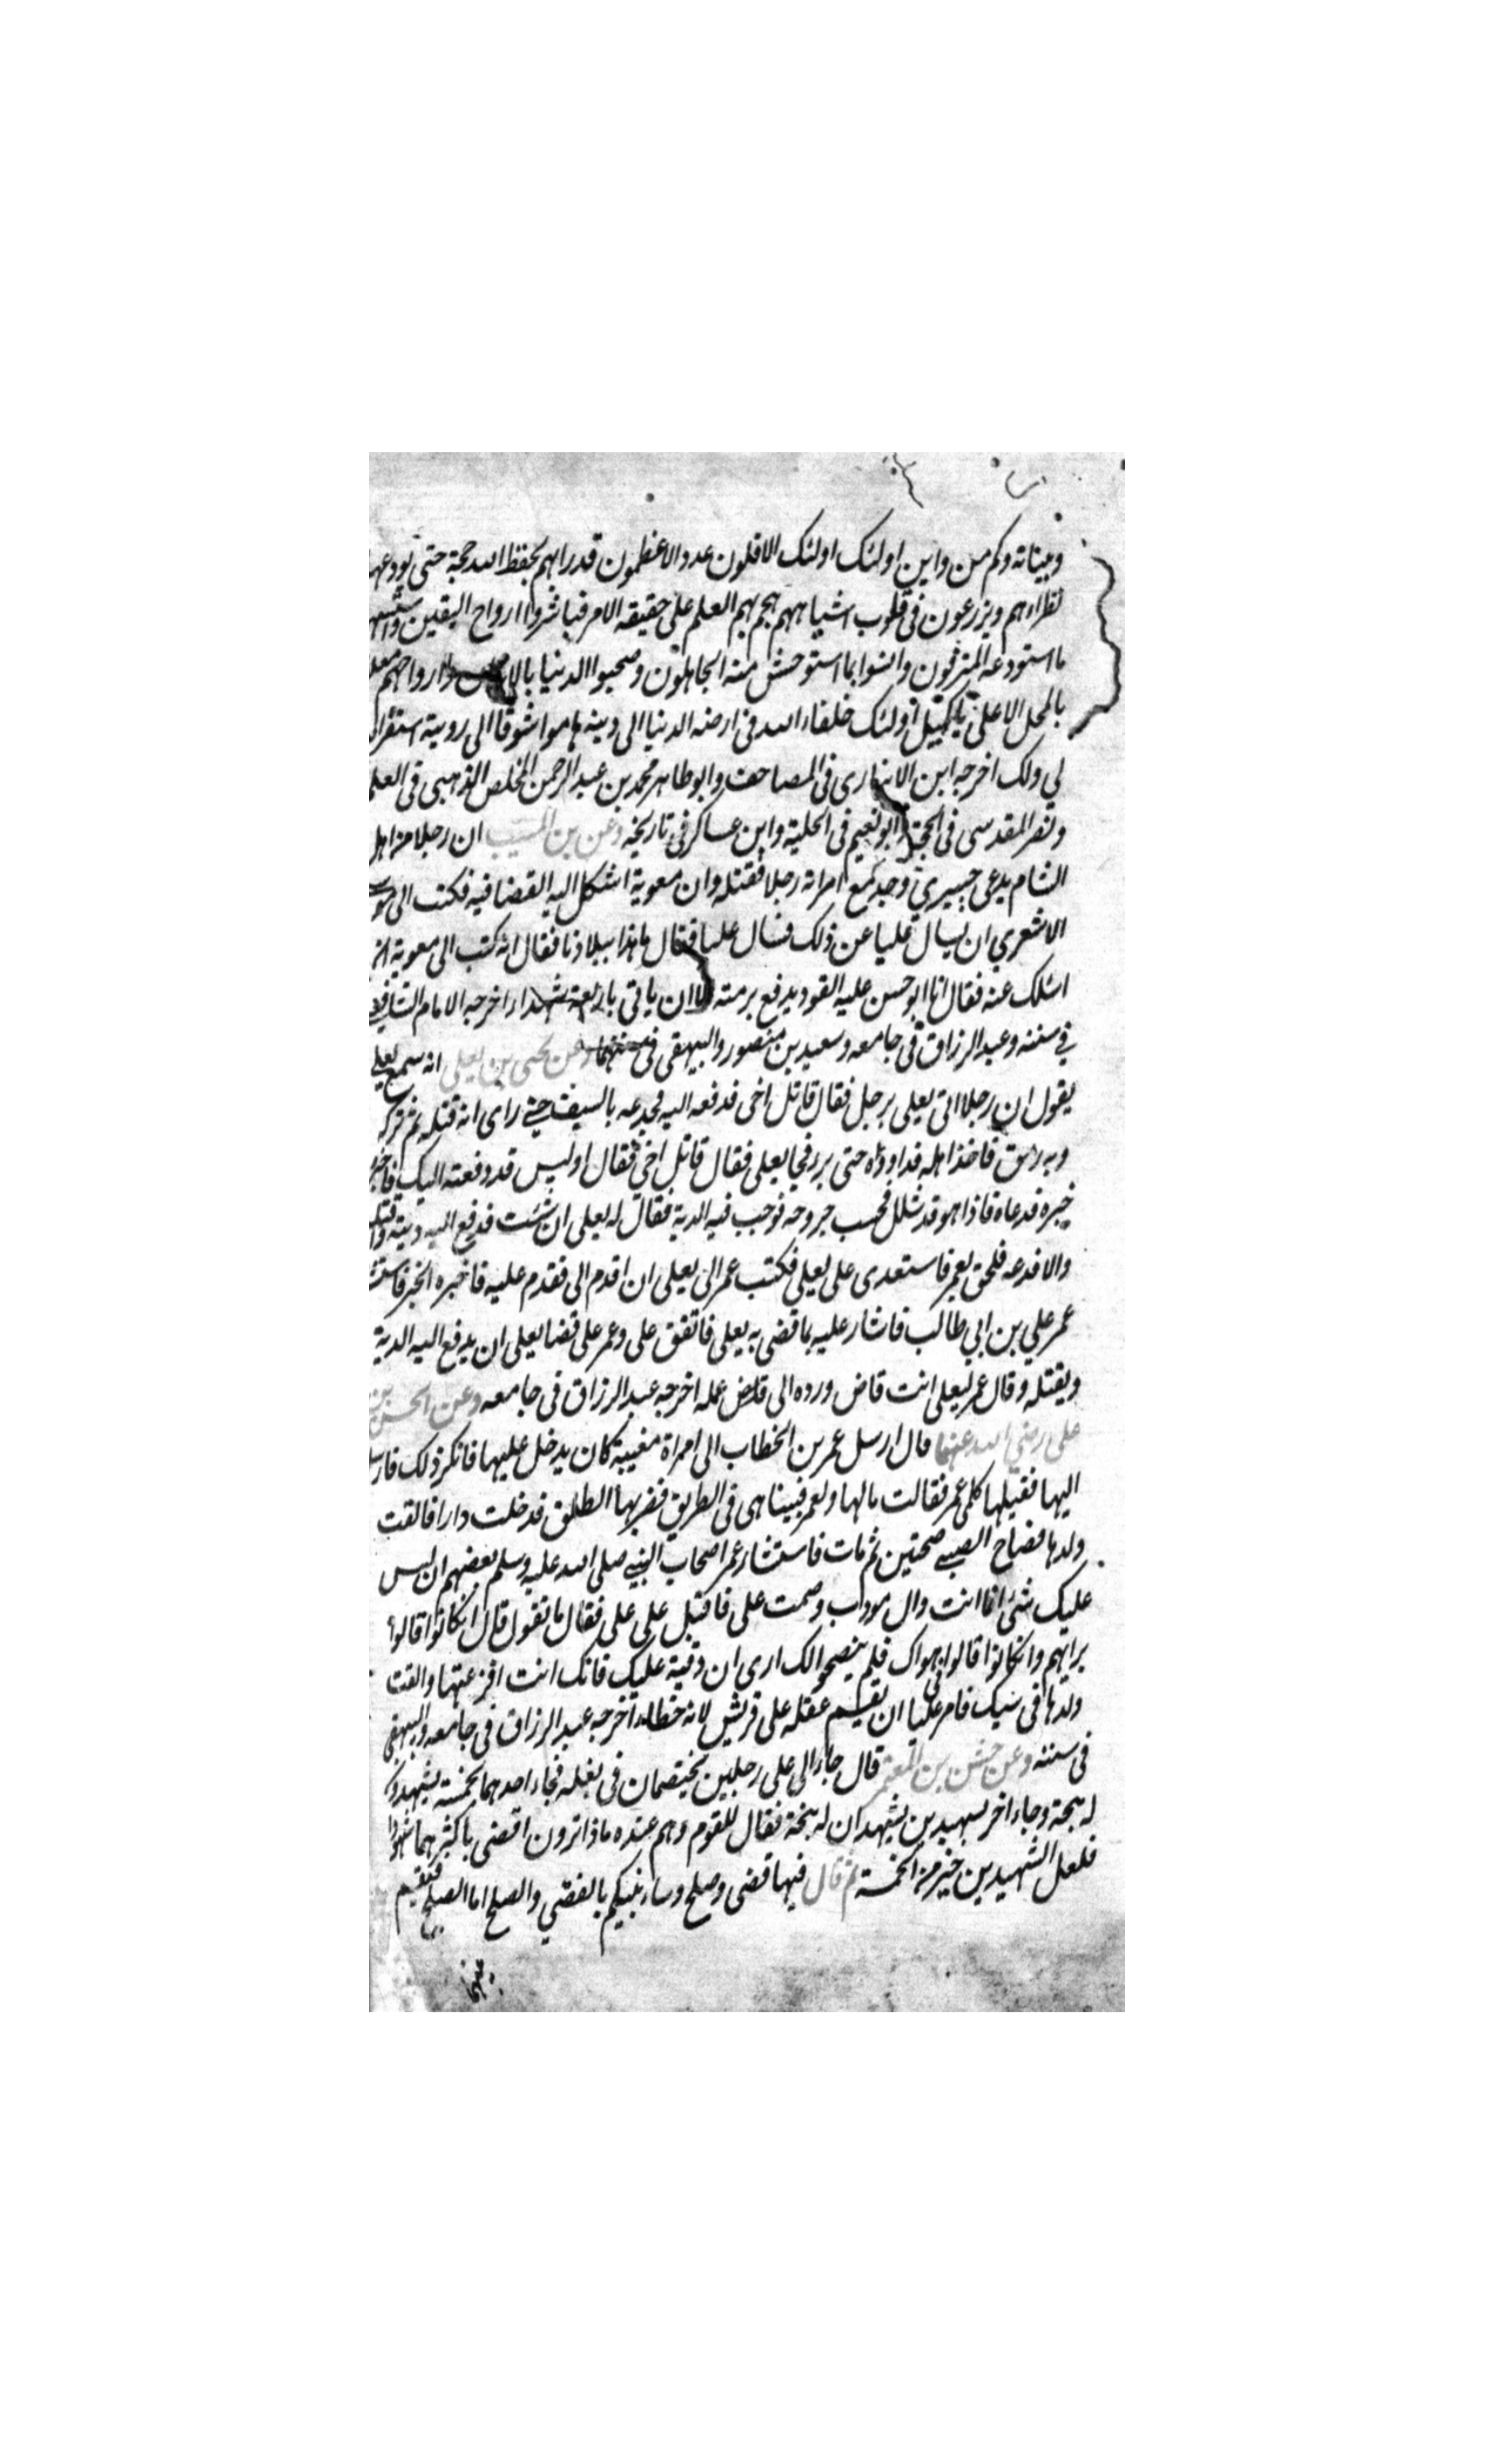 وبيناته وكم من واين اولئک اولئک الاقلون عدد الاعظمون قدرا بهم يحفظ الله حجة حتى يودعها
نظراءهم ويزرعون فى قلوب اشباههم هجم بهم العلم على حقيقه الامر فباشروا ارواح اليقين
ما استودعه المترفون وانسوا بما استوحش منه الجاهلون وصحبوا الدنيا بالابدان وارواحهم معلقة
بالمحل الاعلى يا كميل اولئک خلفاء الله فى ارضه الدنيا الى دينه هاموا شوقا الى رويية استغفر الله
لي ولک اخرجه ابن الانبارى فى المصاحف وابو طاهر محمد بن عبد الرحمن المخلص الذهبى فى العلم
ونصر المقدسى فى الحجة وابو نعيم فى الحلية وابن عساكر فى تاريخه وعن بن المسيب ان رجلا من اهل
الشام يدعى جبيري وجد مع امراته رجلا فقتله وان معوية اشكل اليه القضا فيه فكتب الى
الاشعري ان يسال عليا عن ذلک فسال عليا فقال ما هذا ببلادنا فقال انه كتب الى معوية ان
اسئلک عنه فقال انا ابو حسن عليه القود يدفع برمته الا ان ياتى باربعة شهداء اخرجه الامام الشافعي
في سننه وعبد الرزاق فى جامعه وسعيد بن منصور والبيهقى فى سننهما وعن يحيى بن يعلى انه سمع يعلى
يقول ان رجلا اتى يعلى برجل فقال قاتل اخى فدفعه اليه فجدعه بالسيف حتى راى انه قتله ثم تركه
وبه رمق فاخذ اهله فداووه حتى برر فجا يعلى فقال قاتل اخي فقال اوليس قد دفعته اليک
خبره فدعاه فاذا هو قد شلل فحسب جروحه فوجب فيه الدية فقال له يعلى ان شئت فدفع اليه ديته
والا فدعه فلحق بعمر فاستعدى على يعلى فكتب عمر الى يعلى ان اقدم الى فقدم عليه فاخبره الخبر
عمر علي بن ابي طالب فاشار عليه بما قضى به يعلى فاتفق على وعمر على قضا يعلى ان يدفع اليه الدية
ويقتله وقال عمر ليعلى انت قاض ورده الى عمله اخرجه عبد الرزاق فى جامعه وعن الحسن بن
على رضي الله عنهما قال ارسل عمر بن الخطاب الى امراة مغيبة كان يدخل عليها فانكر ذلک فارسل
اليها فقيل لها كلمى عمر فقالت مالها ولعمر فبينا هى فى الطريق فضربها الطلق فدخلت دارا فالقت
ولدها فصاح الصبي صحتين ثم مات فاستشار عمر اصحاب النبي صلى الله عليه وسلم بعضهم ان ليس
عليک شئ انما انت وال مودب وصمت على فاقبل على على فقال ما تقول قال ان كانوا قالوا
برايهم وان كانوا قالوا فى هواک فلم ينصحوا لک ارى ان ديته عليک فانک انت افزعتها والقت
ولدها فى سبک فامر عليا ان يقسم عقله على قريش لانه خطاء اخرجه عبد الرزاق فى جامعه والبيهقى
فى سننه وعن حنش بن المعتمر قال جاء الى على رجلين يختصمان فى بغله فجاء احدهما بخمسة يشهدون
له بنجة وجاء اخر بشهيدين يشهدان له بنجة فقال للقوم وهم عنده ماذا ترون اقضى باكثرهما شهودا
فلعل الشهيدين خير من الخمسة ثم قال فيها قضى وصلح وسانبئكم بالقضي والصلح اما الصلح فيقيم
بينهما